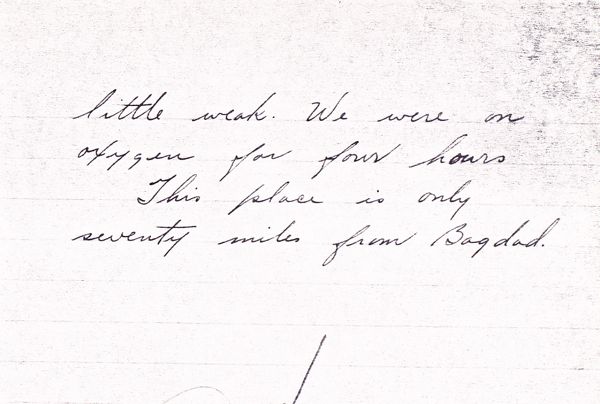 little weak. We were on
oxygen for four hours
This place is only
seventy miles from Bagdad.